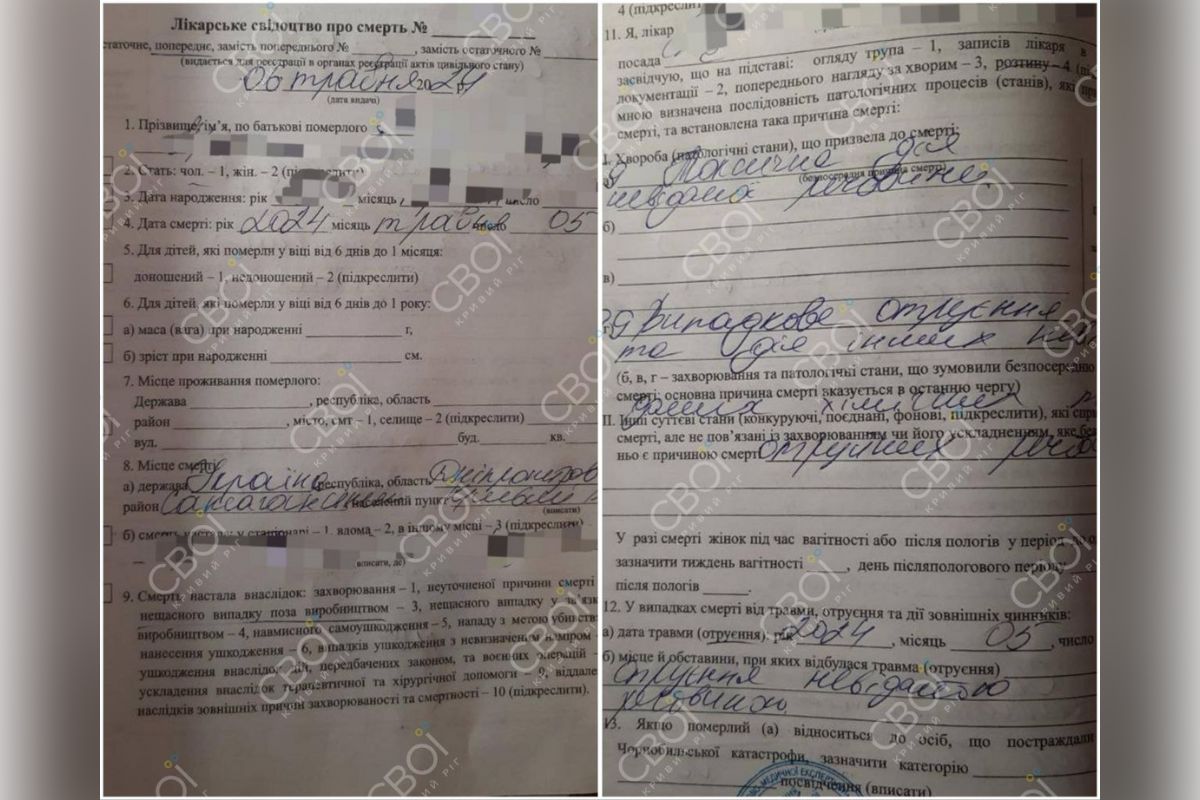 Лікарське свідоцтво про смерть №
статочне, попереднє, замість попереднього № , замість остаточного №
(видається для реєстрації в органах реєстрації актів цивільного стану)
06 травня 2024
(дата видачі)
1. Прізвище, ім’я, по батькові померлого
2. Стать: чол. – 1, жін. – 2
3. Дата народження: рік місяць число
4. Дата смерті: рік 2024 місяць травня число 05
5. Для дітей, які померли у віці від 6 днів до 1 місяця:
доношений – 1, недоношений – 2 (підкреслити)
6. Для дітей, які померли у віці від 6 днів до 1 року:
а) маса (вага) при народженні г,
б) зріст при народженні см.
7. Місце проживання померлого:
Держава , республіка, область
район , місто, смт – 1, селище – 2 (підкреслити)
вул. буд. кв.
8. Місце смерті:
а) держава Україна республіка, область Дніпропетров
район Саксаганський населений пункт Кривий
(вписати)
б) смерть настала: у стаціонарі – 1, вдома – 2, в іншому місці – 3 (підкреслити)
вписати, де)
9. Смерть настала внаслідок: захворювання – 1, неуточненої причини смерті
нещасного випадку поза виробництвом – 3, нещасного випадку у зв’язк
виробництвом – 4, навмисного самоушкодження – 5, нападу з метою убивств
нанесення ушкодження – 6, випадків ушкодження з невизначеним наміром –
ушкодження внаслідок дій, передбачених законом, та воєнних операцій –
ускладення внаслідок терапевтичної та хірургічної допомоги – 9, віддале
наслідків зовнішніх причин захворюваності та смертності – 10 (підкреслити).
4 (підкреслит
11. Я, лікар
посада
засвідчую, що на підставі: огляду трупа – 1, записів лікаря в
документації – 2, попереднього нагляду за хворим – 3, розтину – 4 (пі
мною визначена послідовність патологічних процесів (станів), які
смерті, та встановлена така причина смерті:
І. Хвороба (патологічні стани), що призвела до смерті:
Токсична дія
(безпосередня причина смерті)
невідомої речовини
б)
в)
г) Випадкове отруєння
та дія інших
(б, в, г – захворювання та патологічні стани, що зумовили безпосередню
смерті; основна причина смерті вказується в останню чергу)
хімічних
ІІ. Інші суттєві стани (конкуруючі, поєднані, фонові, підкреслити), які спри
смерті, але не пов’язані із захворюванням чи його ускладненням, яке без
ньо є причиною смерті отруйних речов
У разі смерті жінок під час вагітності або після пологів у період до
зазначити тиждень вагітності , день післяпологового періоду
після пологів .
12. У випадках смерті від травми, отруєння та дії зовнішніх чинників:
а) дата травми (отруєння): рік 2024 , місяць 05 , число
б) місце й обставини, при яких відбулася травма (отруєння)
отруєння невідомою
речовиною
13. Якщо померлий (а) відноситься до осіб, що постраждали
Чорнобильської катастрофи, зазначити категорію
посвідчення (вписати)
МЕДИЧНОЇ ЕКСПЕРТИЗИ
СВОЇ
КРИВИЙ РІГ